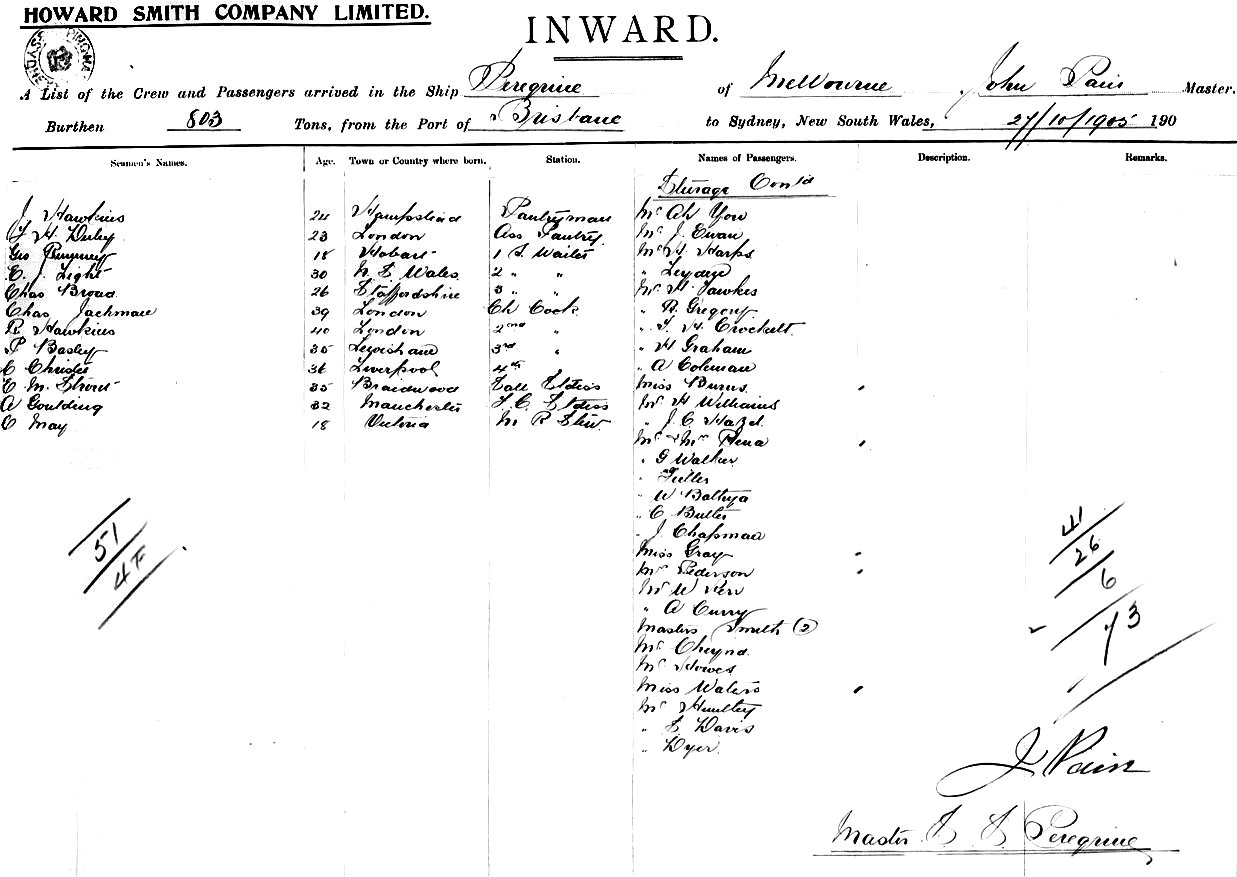 HOWARD SMITH COMPANY LIMITED.
INWARD.
A List of the Crew and Passengers arrived in the Ship Peregrine of Melbourne, John Pain Master.
Burthen 803 Tons, from the Port of Brisbane to Sydney, New South Wales, 27/10/1905 190
Seamen's Names. Age. Town or Country where born. Station. Names of Passengers. Description. Remarks.
Steerage Cont'd
J Hawkins 24 Hampstead Pantryman Mr Ah You
23 London Ass Pantry Mr J. Ewan
Geo 18 Hobart 1 S. Waiter Mr H. Harps
E. J. Light 30 N. S. Wales 2 " " " Leydin
Chas Broad 26 Staffordshire 3 " " Mr H Hawkes
Chas Jachman 39 London Ch Cook " R. Gregory
R Hawkins 40 London 2nd " " T. H. Crockett
P Basley 35 Lewisham 3rd " " H Graham
C Christie 36 Liverpool 4th " A Coleman
E M. 35 Braidwood Stdess Miss Burns
A Goulding 32 Manchester Stdess Mr H Williams
C May 18 Victoria M R Stew. " J. C. Hazel
Mr & Mrs Rena
" G Walker
" W Balhya
" C Butler
" J. Chapman
Miss Gray
Pederson
Mr W Kerr
" A Curry
Masters Smith (2)
Miss Waters
Mr Huntley
" S Davis
" Dyer.
51
41
26
6
73
J Pain
Master S. S. Peregrine